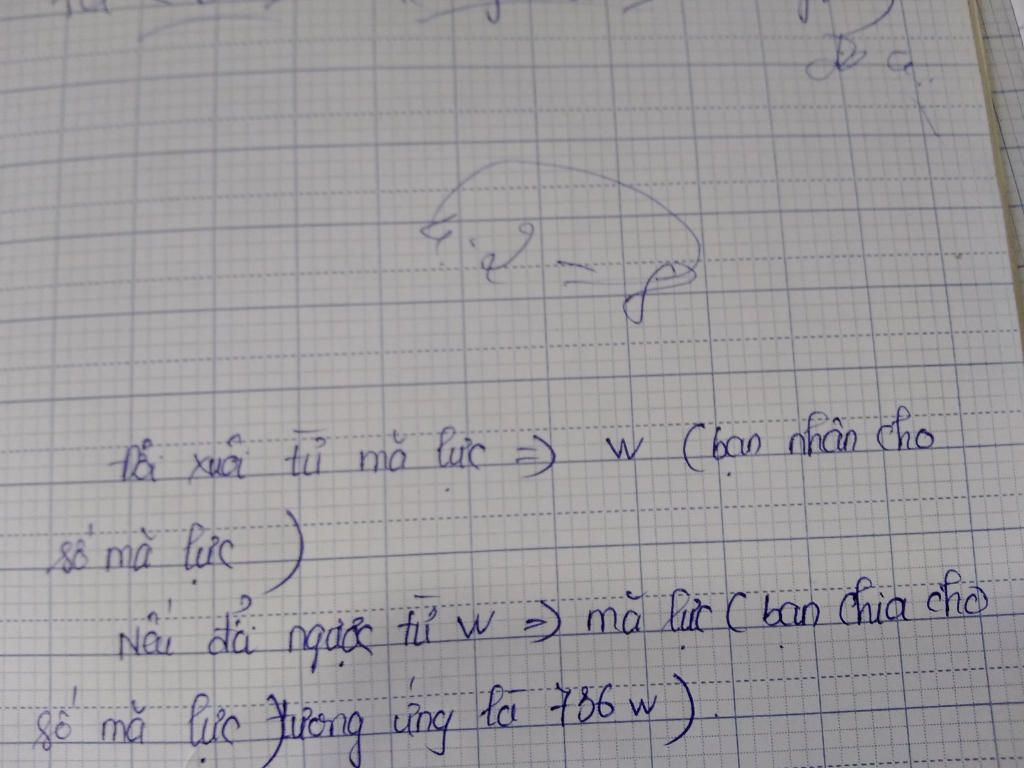 4.2 = 8
Đổi xuôi từ mã lực => W (bạn nhân cho
số mã lực)
Nếu đổi ngược từ W => mã lực (bạn chia cho
số mã lực) tương ứng là 736 W).